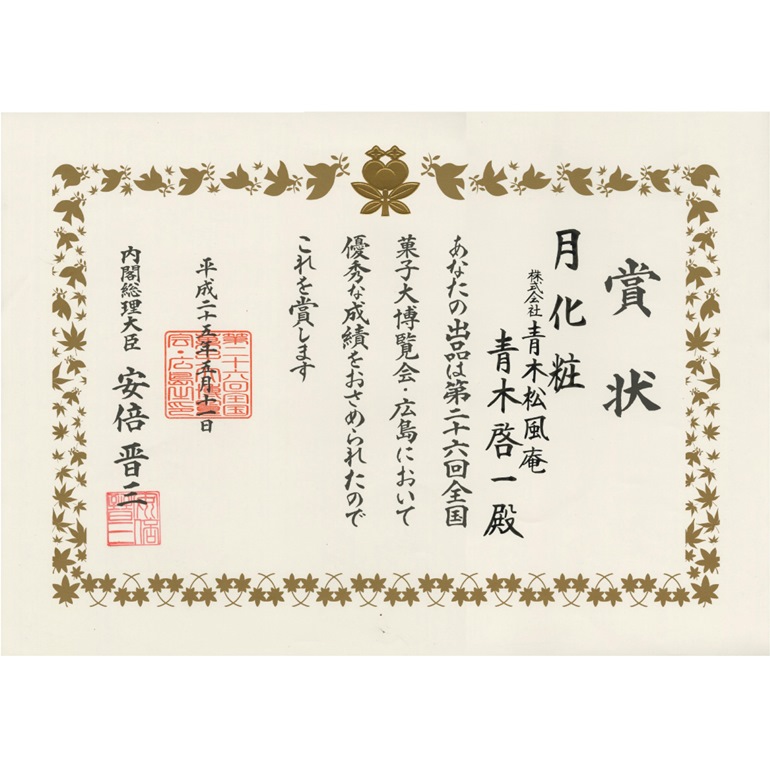 賞状
月化粧
株式会社青木松風庵
青木啓一殿
あなたの出品は第二十六回全国
菓子大博覧会・広島において
優秀な成績をおさめられたので
これを賞します
平成二十五年五月十一日
内閣総理大臣 安倍晋三